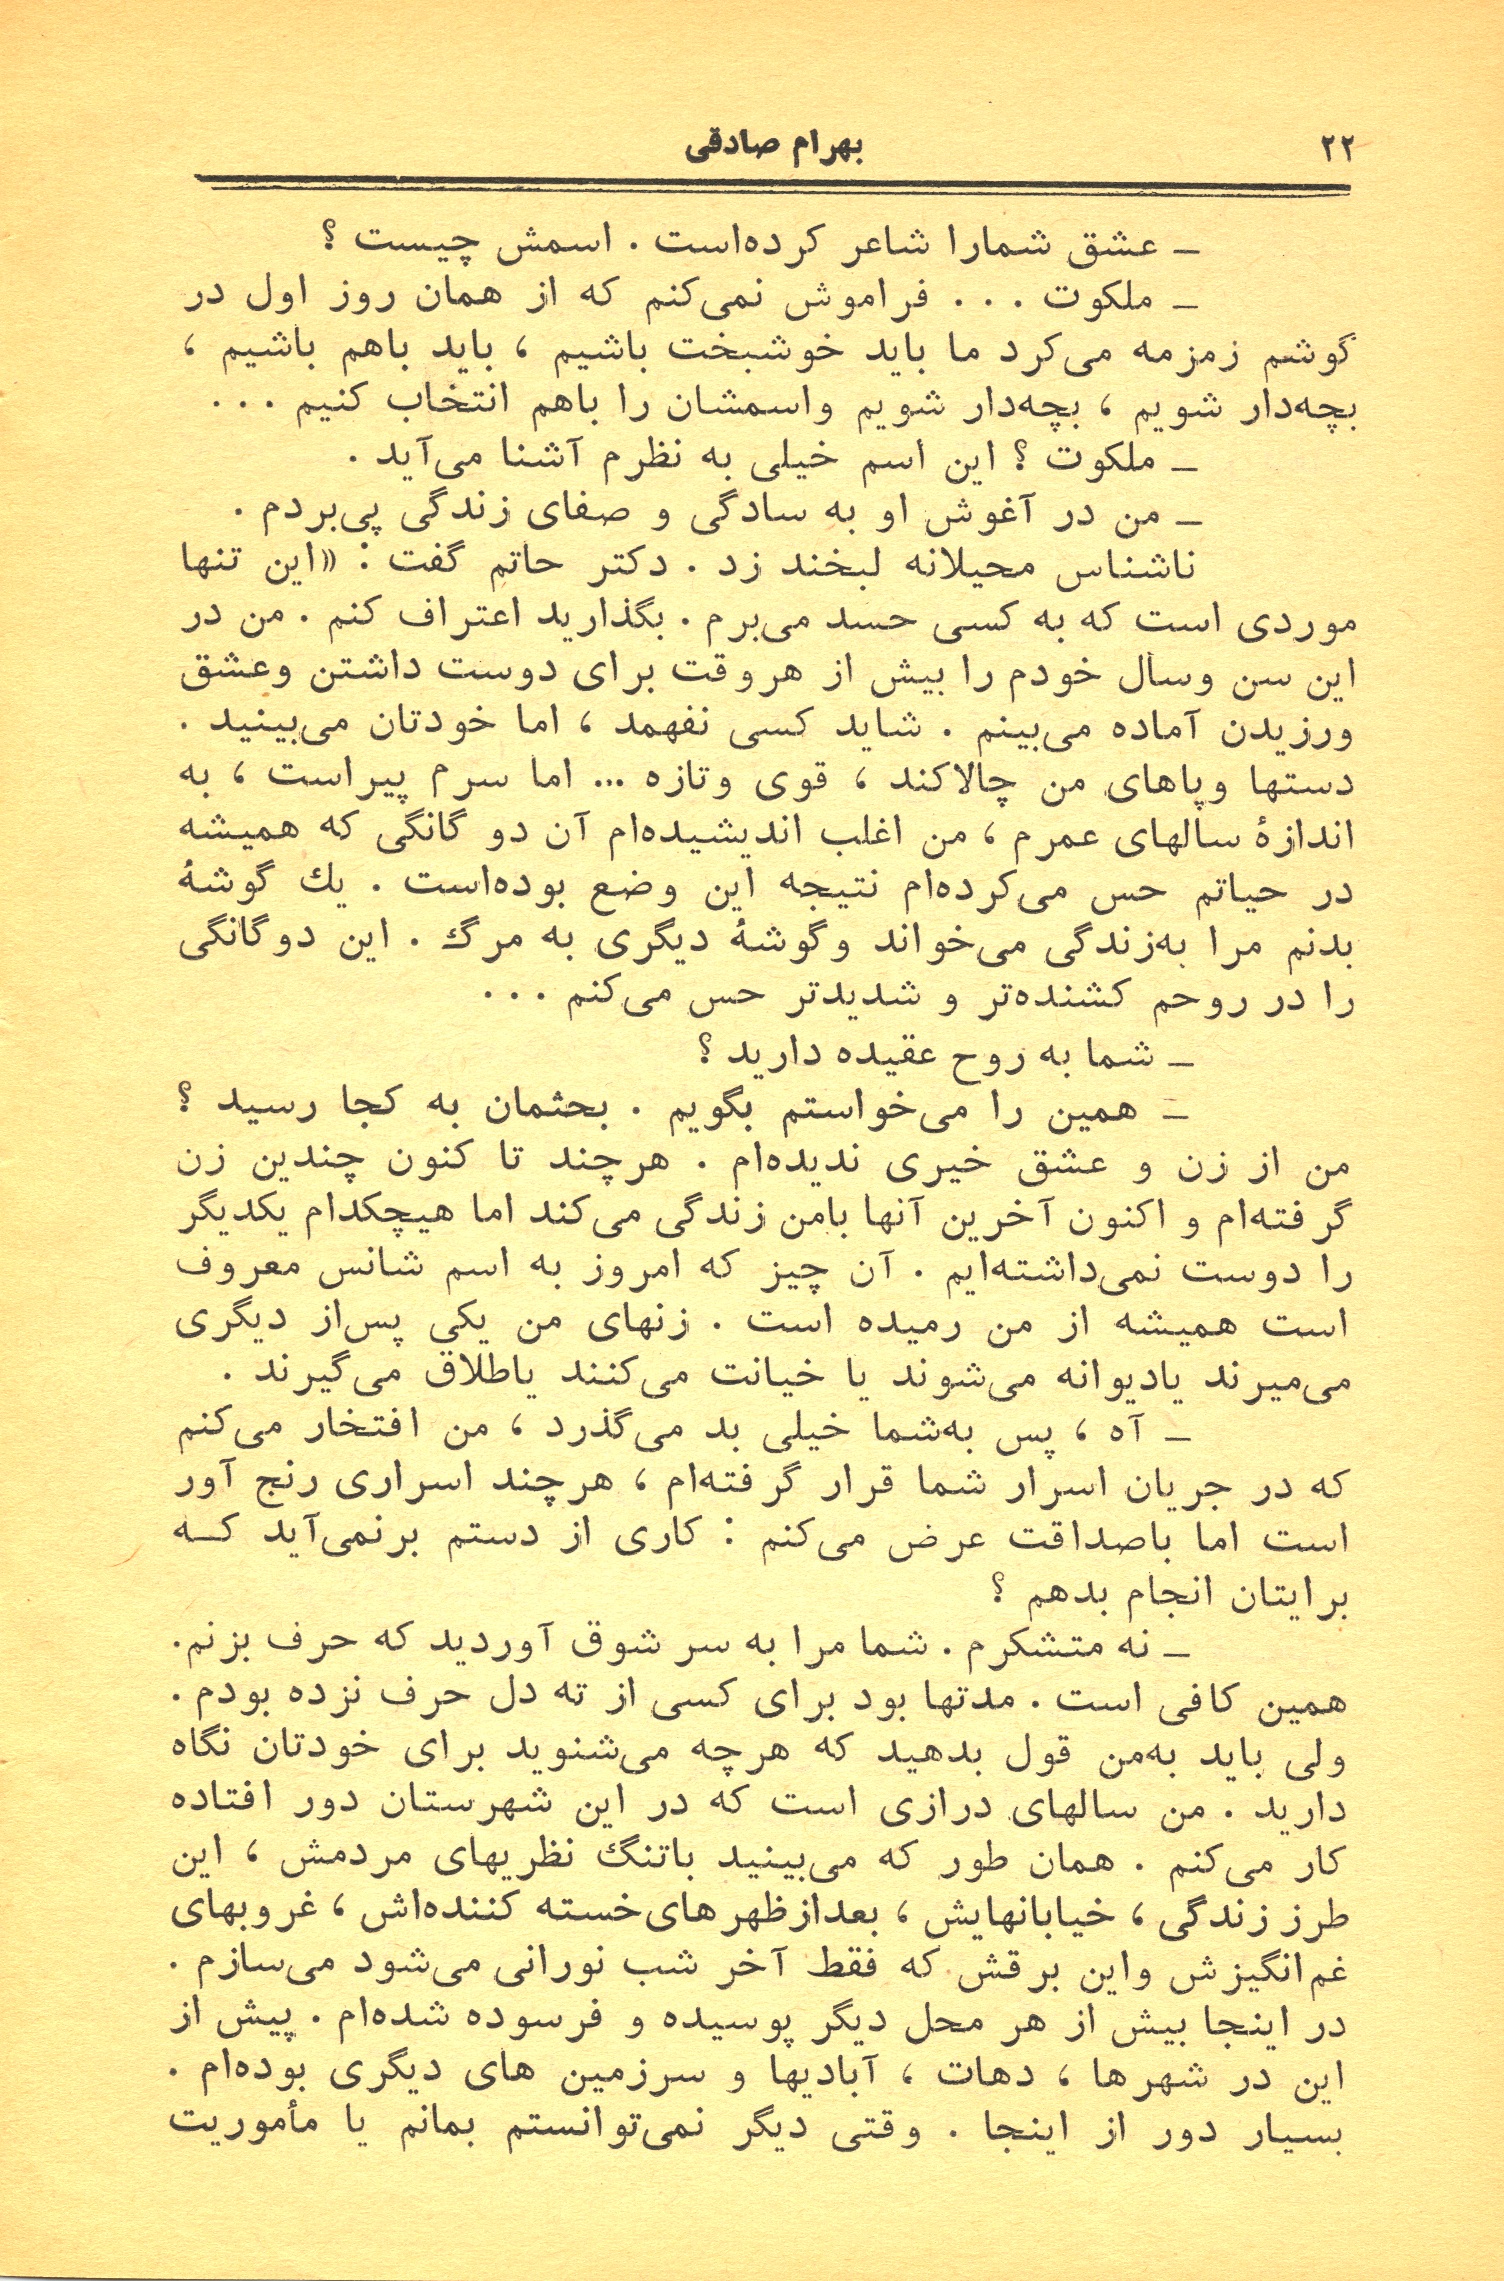 ۲۲
بهرام صادقی
ـ عشق شمارا شاعر کرده‌است . اسمش چیست ؟
ـ ملکوت . . . فراموش نمی‌کنم که از همان روز اول در
گوشم زمزمه می‌کرد ما باید خوشبخت باشیم ، باید باهم باشیم ،
بچه‌دار شویم ، بچه‌دار شویم واسمشان را باهم انتخاب کنیم . . .
ـ ملکوت ؟ این اسم خیلی به نظرم آشنا می‌آید .
ـ من در آغوش او به سادگی و صفای زندگی پی‌بردم .
ناشناس محیلانه لبخند زد . دکتر حاتم گفت : «این تنها
موردی است که به کسی حسد می‌برم . بگذارید اعتراف کنم . من در
این سن وسال خودم را بیش از هروقت برای دوست داشتن وعشق
ورزیدن آماده می‌بینم . شاید کسی نفهمد ، اما خودتان می‌بینید .
دستها وپاهای من چالاکند ، قوی وتازه ... اما سرم پیراست ، به
اندازهٔ سالهای عمرم ، من اغلب اندیشیده‌ام آن دو گانگی که همیشه
در حیاتم حس می‌کرده‌ام نتیجه این وضع بوده‌است . یك گوشهٔ
بدنم مرا به‌زندگی می‌خواند وگوشهٔ دیگری به مرگ . این دوگانگی
را در روحم کشنده‌تر و شدیدتر حس می‌کنم . . .
ـ شما به روح عقیده دارید ؟
ـ همین را می‌خواستم بگویم . بحثمان به کجا رسید ؟
من از زن و عشق خیری ندیده‌ام . هرچند تا کنون چندین زن
گرفته‌ام و اکنون آخرین آنها بامن زندگی می‌کند اما هیچکدام یکدیگر
را دوست نمی‌داشته‌ایم . آن چیز که امروز به اسم شانس معروف
است همیشه از من رمیده است . زنهای من یکی پس‌از دیگری
می‌میرند یادیوانه می‌شوند یا خیانت می‌کنند یاطلاق می‌گیرند .
ـ آه ، پس به‌شما خیلی بد می‌گذرد ، من افتخار می‌کنم
که در جریان اسرار شما قرار گرفته‌ام ، هرچند اسراری رنج آور
است اما باصداقت عرض می‌کنم : کاری از دستم برنمی‌آید کــه
برایتان انجام بدهم ؟
ـ نه متشکرم . شما مرا به سر شوق آوردید که حرف بزنم.
همین کافی است . مدتها بود برای کسی از ته دل حرف نزده بودم .
ولی باید به‌من قول بدهید که هرچه می‌شنوید برای خودتان نگاه
دارید . من سالهای درازی است که در این شهرستان دور افتاده
کار می‌کنم . همان طور که می‌بینید باتنگ نظریهای مردمش ، این
طرز زندگی ، خیابانهایش ، بعدازظهرهای‌خسته کننده‌اش ، غروبهای
غم‌انگیزش واین برقش که فقط آخر شب نورانی می‌شود می‌سازم .
در اینجا بیش از هر محل دیگر پوسیده و فرسوده شده‌ام . پیش از
این در شهرها ، دهات ، آبادیها و سرزمین های دیگری بوده‌ام .
بسیار دور از اینجا . وقتی دیگر نمی‌توانستم بمانم یا مأموریت